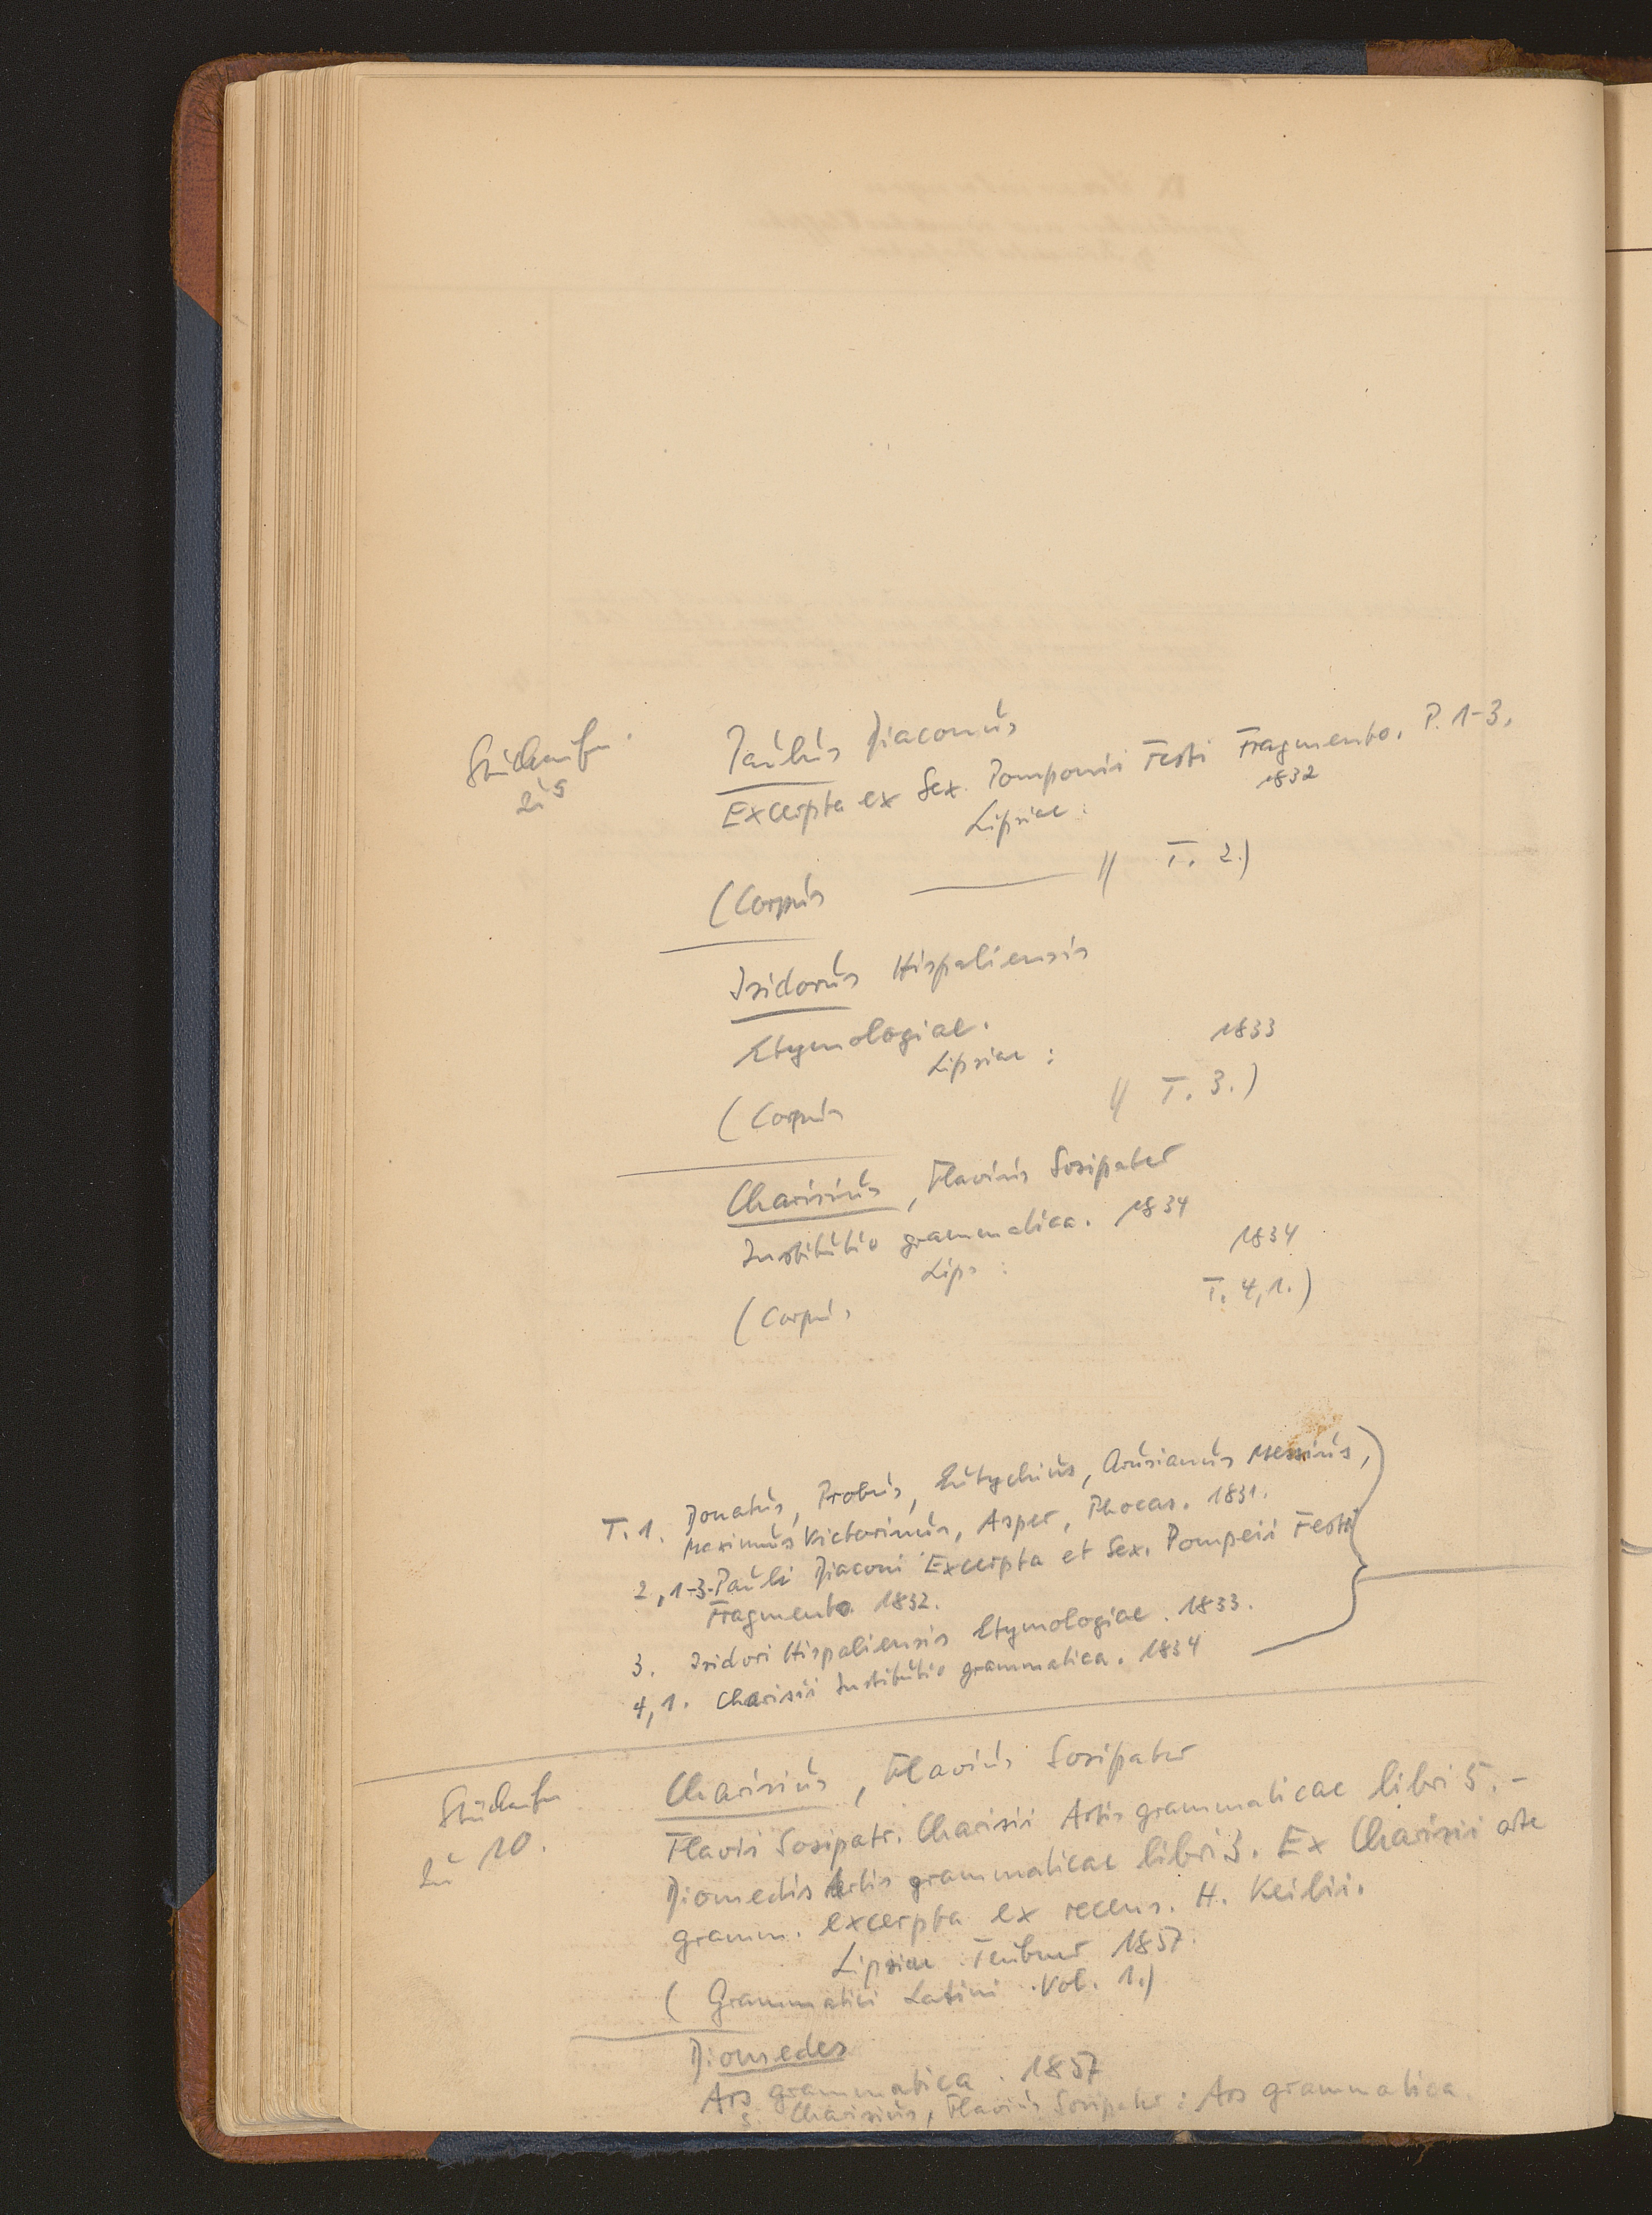 Stückaufn.
zu 9
Paulus Diaconus
Excerpta ex Sex. Pomponii Festi Fragmento. P. 1-3.
Lipsiae : 1832
(Corpus — // T. 2.)
Isidorus Hispaliensis
Etymologiae.
Lipsiae : 1833
(Corpus // T. 3.)
Charisius, Flavius Sosipater
Institutio grammatica. 1834
Lips : 1834
(Corpus T. 4,1.)
T. 1. Donatus, Probus, Eutychius, Arusianus Messius,
Maximus Victorinus, Asper, Phocas. 1831.
2, 1-3. Pauli Diaconi Excerpta et Sex. Pompeii Festi
Fragmento. 1832.
3. Isidori Hispaliensis Etymologiae. 1833.
4, 1. Charisii Institutio grammatica. 1834
Stückaufn
zu 10.
Charisius, Flavius Sosipater
Flavii Sosipatr. Charisii Artis grammaticae libri 5. -
Diomedis Artis grammaticae libri 3. Ex Charisii arte
gramm. excerpta ex recens. H. Keilii.
Lipsiae Teubner 1857.
( Grammatici Latini . Vol. 1.)
Diomedes
Ars grammatica . 1857
s. Charisius, Flavius Sosipater : Ars grammatica.